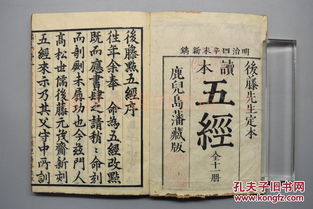 明治四辛未新鐫
後藤先生定本
讀本
五經
全十一冊
鹿兒島藩藏版
後藤點五經序
往年余奉　命為五經改點
既而應書肆之請稿之命刻
而剞劂未畢功也今茲門人
高松世儒後藤元茂齋新刻
五經來示乃其父守中所訓